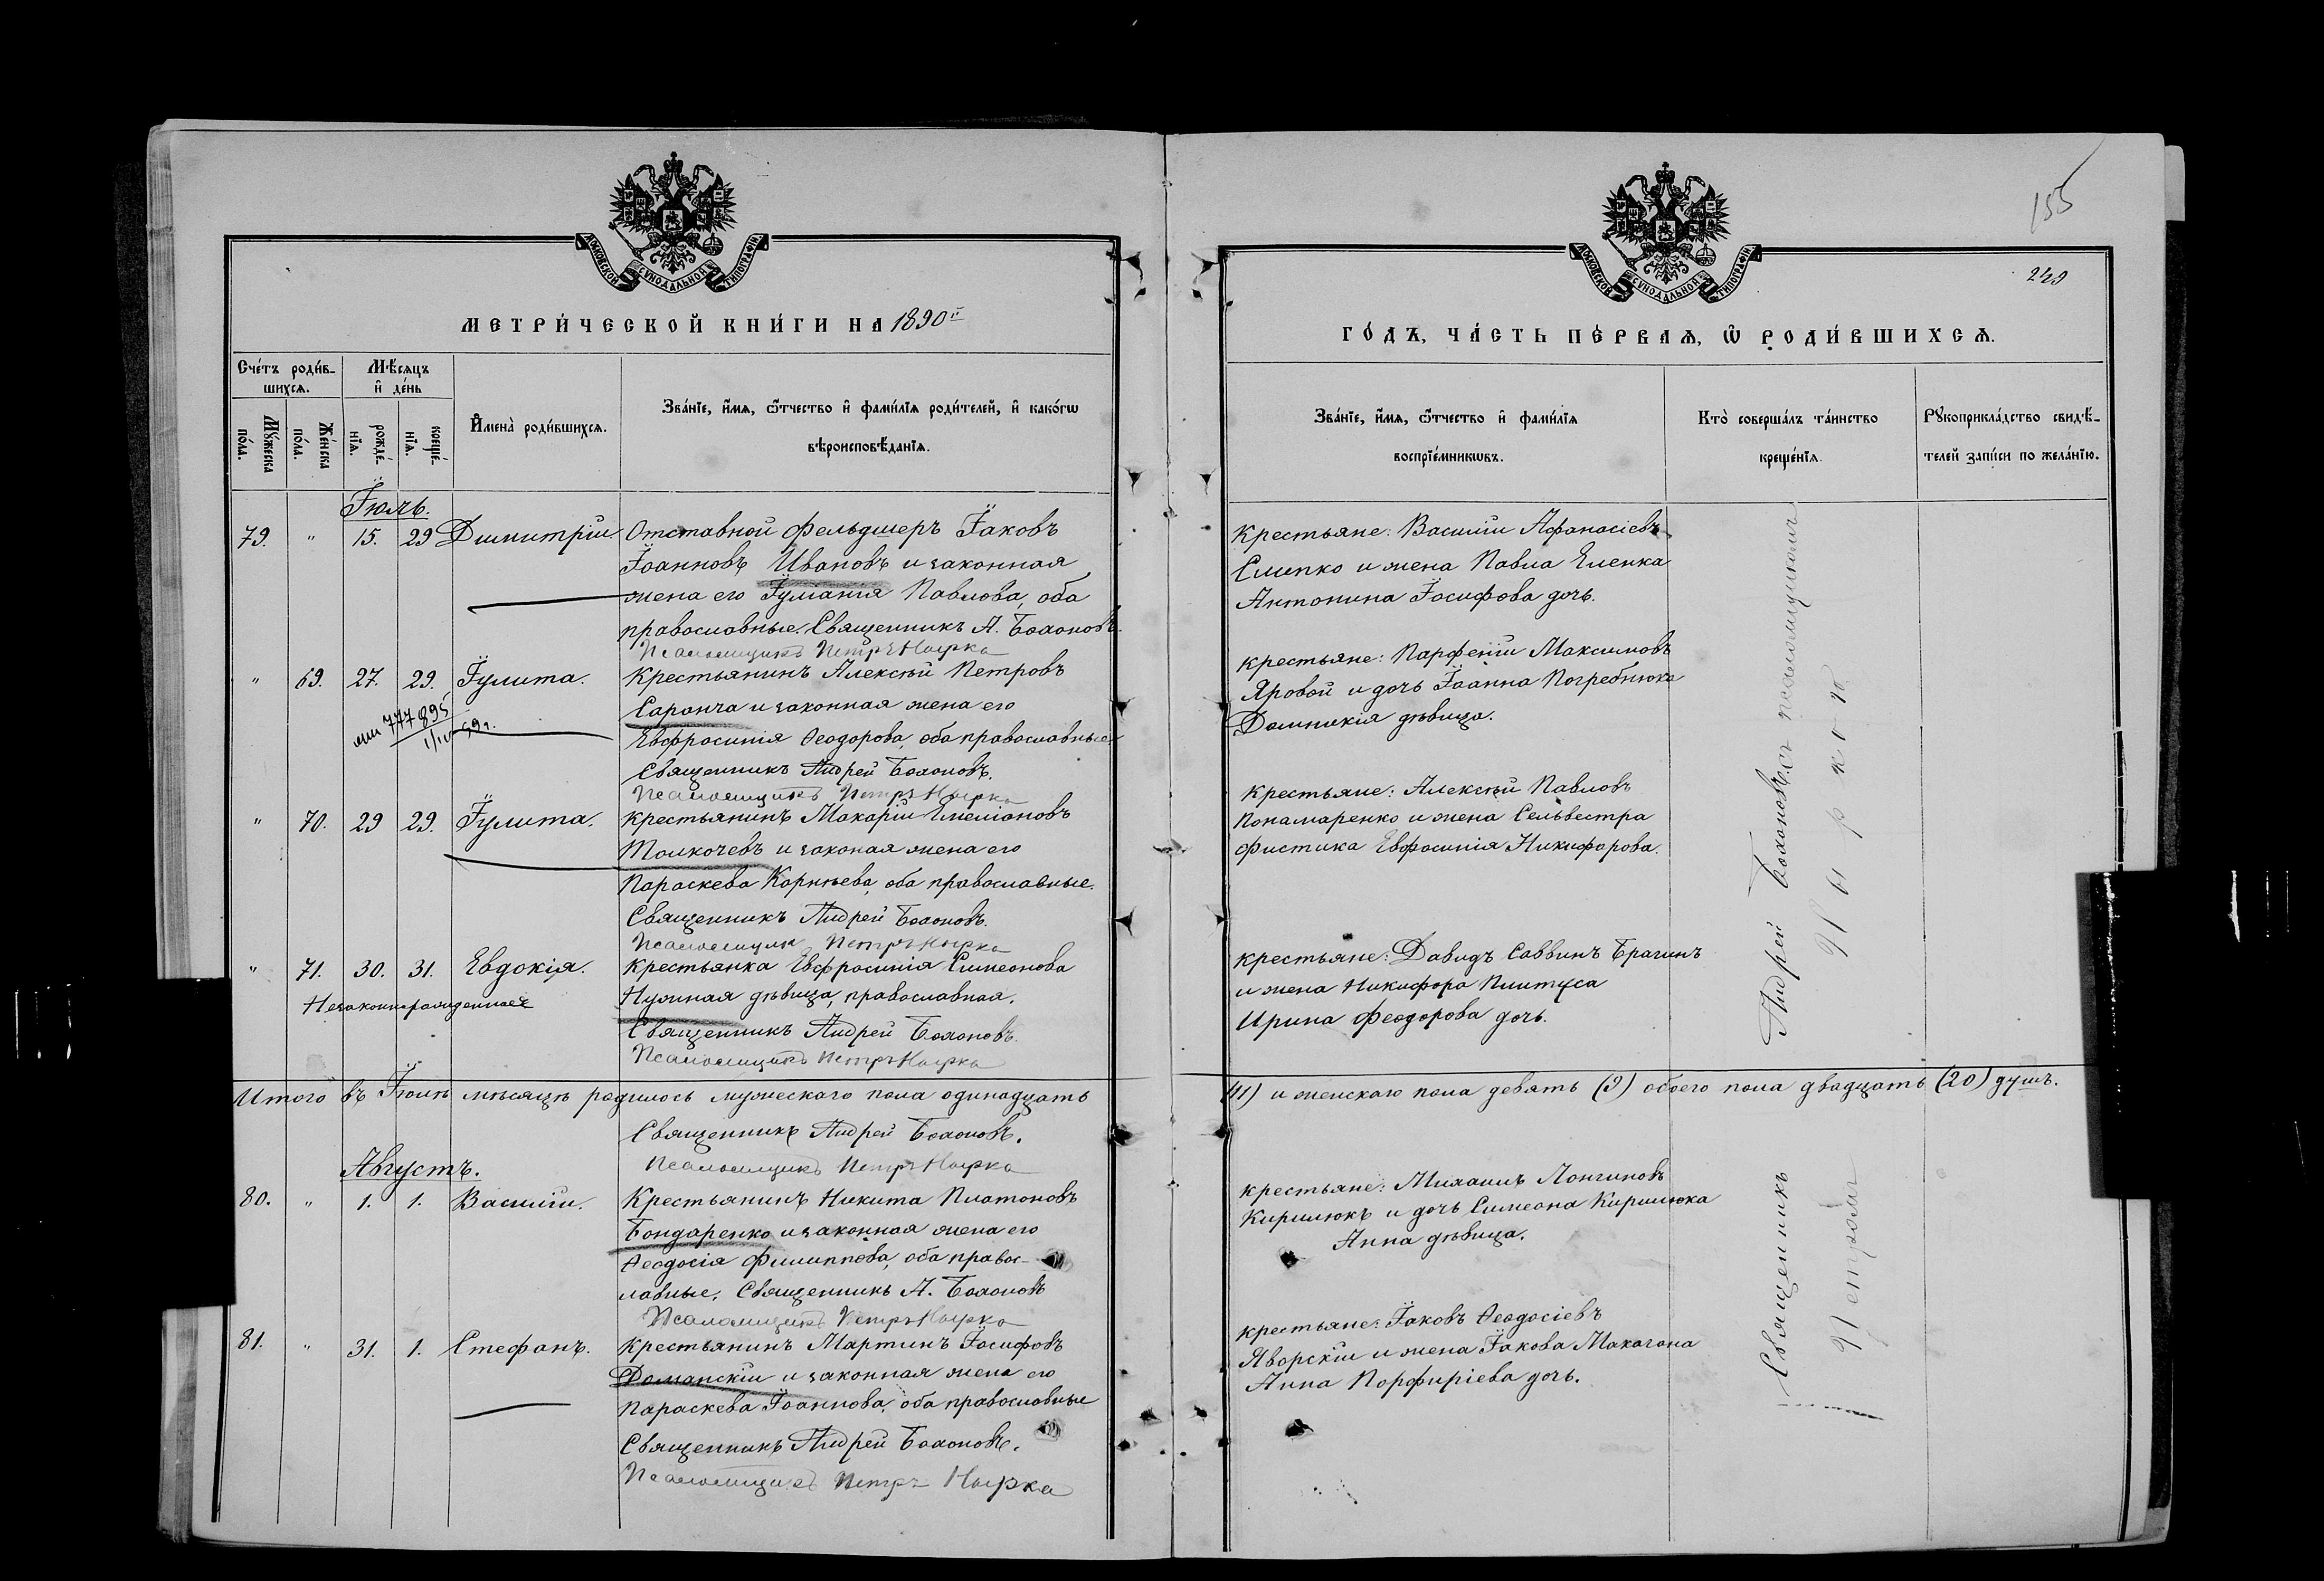 155
249
МОСКОВСКОЙ СѴНОДАЛЬНОЙ ТИПОГРАФІИ
МЕТРИ́ЧЕСКОЙ КНИ́ГИ НА 1890й
Сче́тъ роди́в-
шихся.
Мꙋ́жеска
по́ла.
Же́нска
по́ла.
Мѣ́сяцъ
и҆ де́нь
рожде́-
нїѧ.
креще́-
нїѧ.
И҆мена̀ роди́вшихсѧ.
Зва́нїе, и҆́мѧ, ѻ҆́тчество и҆ фами́лїѧ роди́телей, и҆ како́гѡ
вѣроисповѣ́данїѧ.
Їюль.
79. " 15. 29 Димитрій. Отставной фельдшеръ Їаковъ
Їоанновъ Ивановъ и законная
жена его Їуліанія Павлова, оба
православные. Священникъ А. Бохоновъ.
Псаломщикъ Петръ Нырка
" 69. 27. 29. Їулита. Крестьянинъ Алексѣй Петровъ
Саранча и законная жена его
777895
Евфросинія Ѳеодорова, оба православные
Священникъ Андрей Бохоновъ.
Псаломщикъ Петръ Нырка
" 70. 29 29. Їулита. Крестьянинъ Макарій Емеліановъ
Толкочевъ и законая жена его
Параскева Корнѣева, оба православные.
Священникъ Андрей Бохоновъ.
Псаломщикъ Петръ Нырка
" 71. 30. 31. Евдокія. Крестьянка Евфросинія Симеонова
Незаконнорожденная Нужная дѣвица, православная.
Священникъ Андрей Бохоновъ.
Псаломщикъ Петръ Нырка
Итого въ Їюлѣ мѣсяцѣ родилось мужескаго пола одинадцать
Священникъ Андрей Бохоновъ.
Псаломщикъ Петръ Нырка
Августъ.
80. " 1. 1. Василій. Крестьянинъ Никита Платоновъ
Бондаренко и законная жена его
Ѳеодосія Филиппова, оба правос-
лавные. Священникъ А. Бохоновъ
Псаломщикъ Петръ Нырка
81. " 31. 1. Стефанъ. Крестьянинъ Мартинъ Їосифовъ
Доманскій и законная жена его
Параскева Їоаннова, оба православные
Священникъ Андрей Бохоновъ.
Псаломщикъ Петръ Нырка
МОСКОВСКОЙ СѴНОДАЛЬНОЙ ТИПОГРАФІИ
ГО́ДЪ, ЧА́СТЬ ПЕ́РВАѦ, Ѽ РОДИ́ВШИХСѦ.
Зва́нїе, и҆́мѧ, ѻ҆́тчество и҆ фами́лїѧ
воспрїе́мникѡвъ.
Кто̀ соверша́лъ та́инство
креще́нїѧ.
Рꙋкоприкла́дство свидѣ́-
телей за́писи по жела́нїю.
Крестьяне: Василій Афанасіевъ
Слипко и жена Павла Еленка
Антонина Їосифова дочь.
Крестьяне: Парфеній Максимовъ
Яровой и дочь Їоанна Погребнюка
Домникія дѣвица.
Крестьяне: Алексѣй Павловъ
Понамаренко и жена Сельвестра
Фистика Евфросинія Никифорова.
Крестьяне: Давидъ Саввинъ Брагинъ
и жена Никифора Плитуса
Ирина Феодорова дочь.
(11) и женскаго пола девять (9) обоего пола двадцать (20) душъ.
Крестьяне: Михаилъ Лонгиновъ
Кирилюкъ и дочь Симеона Кирилюка
Анна дѣвица.
Крестьяне: Їаковъ Ѳеодосіевъ
Яворскій и жена Їакова Макагона
Анна Порфиріева дочь.
Священникъ Андрей Бохоновъ съ псаломщикомъ
Петромъ Ныркою